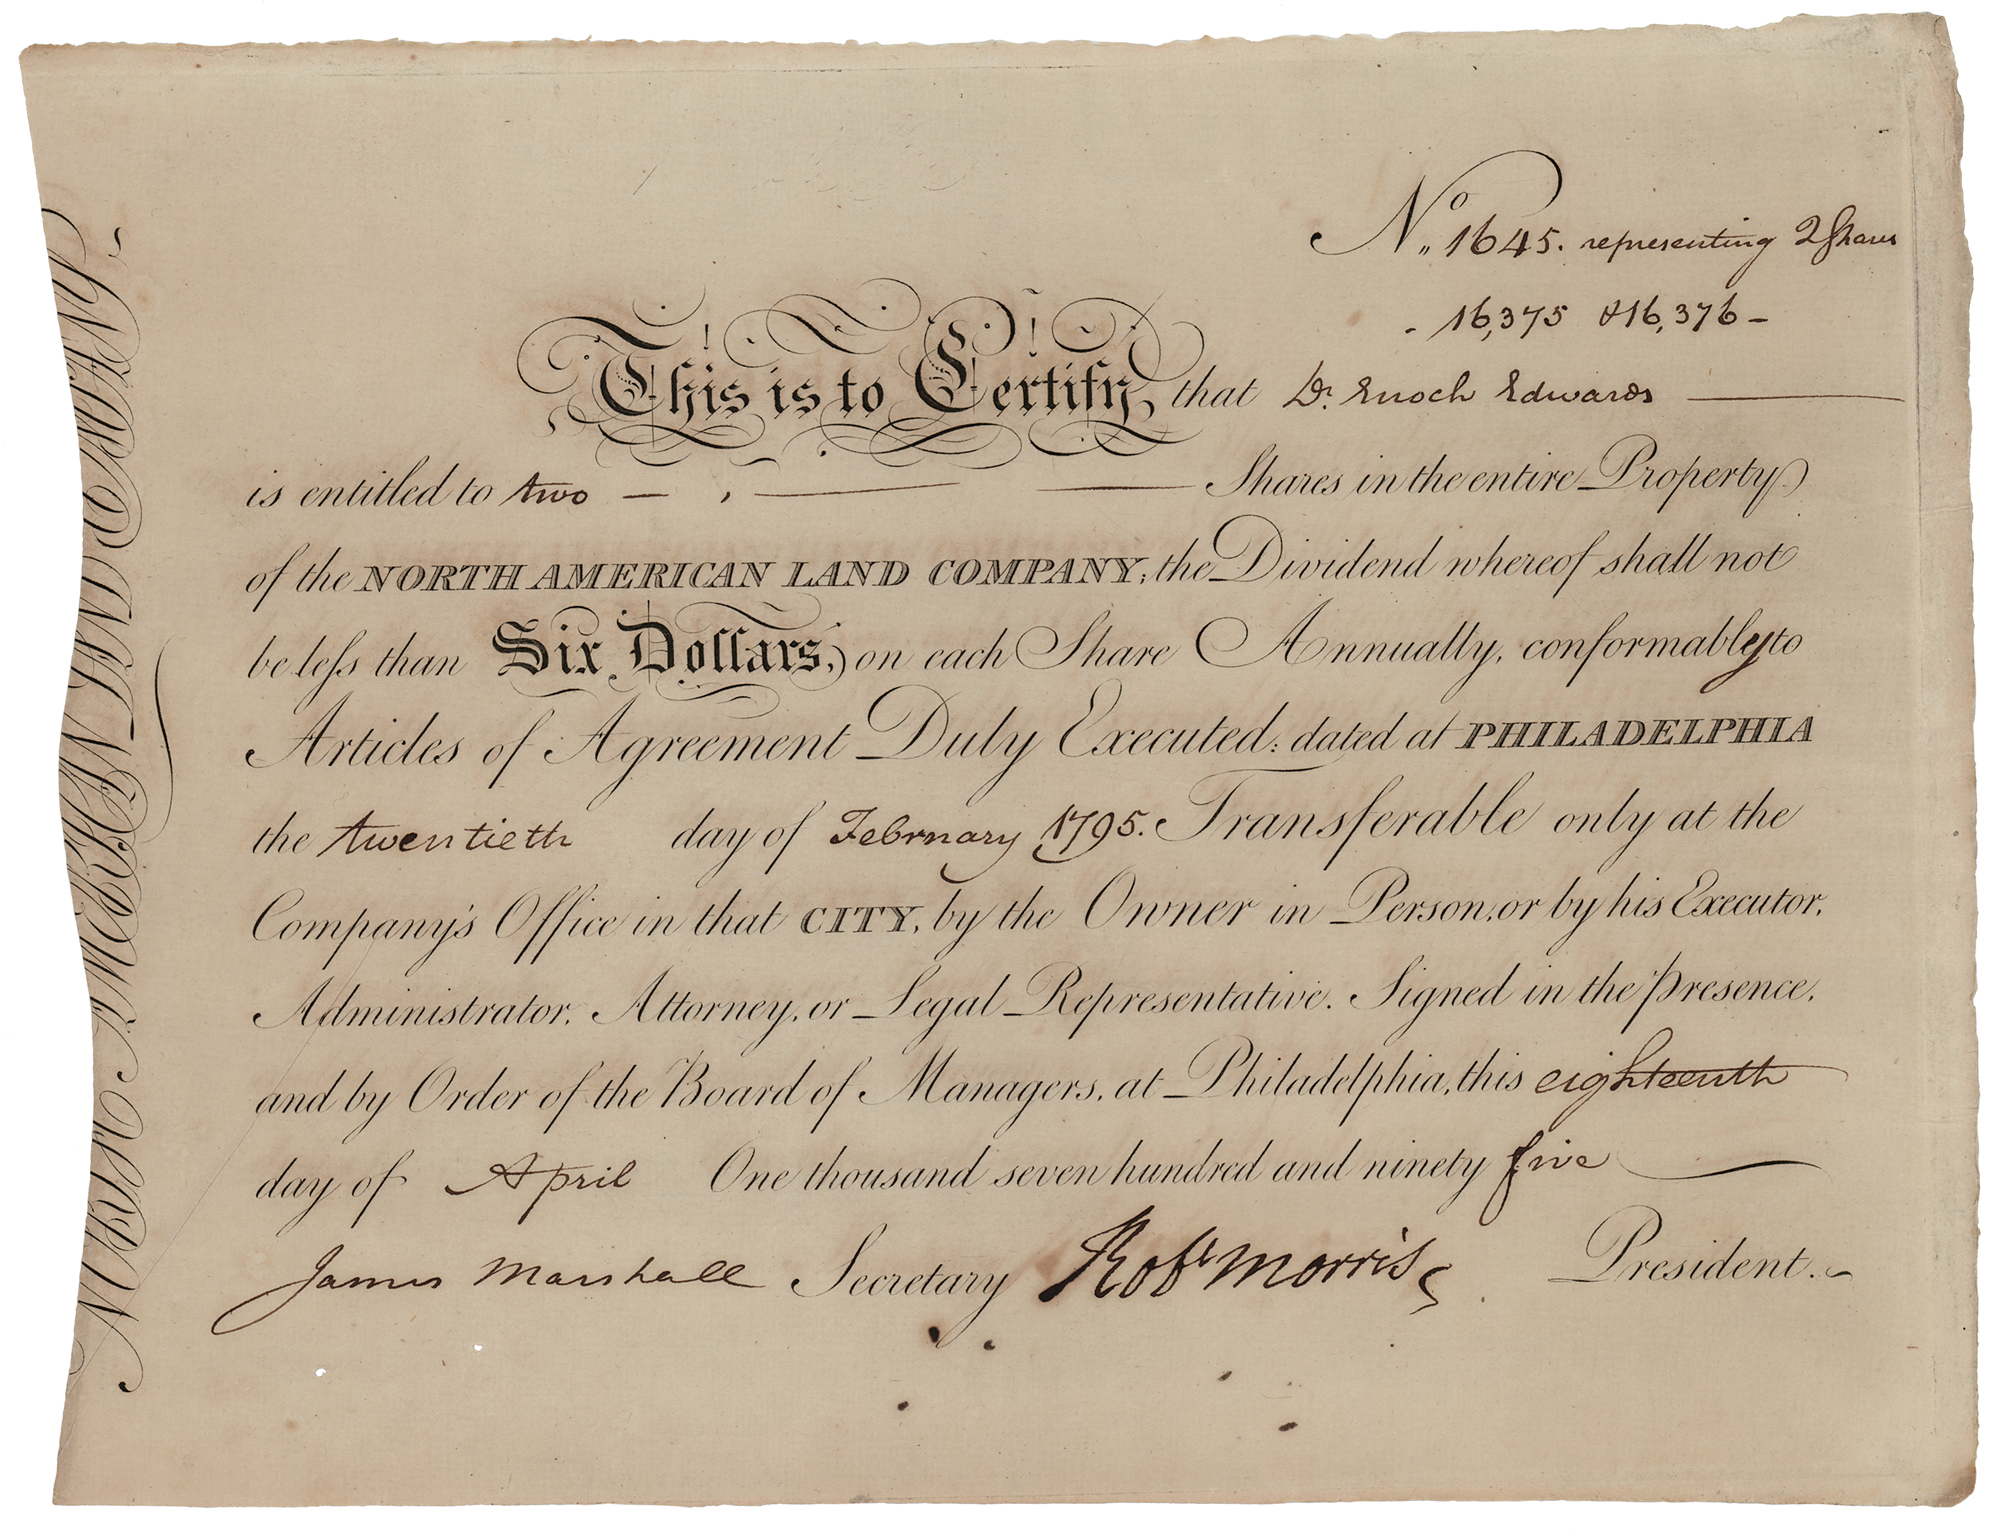 No. 1645. representing 2 Shares
- 16,375 & 16,376 -
This is to Certify, that Dr. Enoch Edwards
is entitled to two Shares in the entire Property
of the NORTH AMERICAN LAND COMPANY; the Dividend whereof shall not
be less than Six Dollars, on each Share Annually, conformably to
Articles of Agreement Duly Executed: dated at PHILADELPHIA
the twentieth day of February 1795. Transferable only at the
Company's Office in that CITY, by the Owner in Person, or by his Executor,
Administrator, Attorney, or Legal Representative. Signed in the presence,
and by Order of the Board of Managers, at Philadelphia, this eighteenth
day of April One thousand seven hundred and ninety five
James Marshall Secretary Robt Morris President.
NORTH AMERICAN LAND COMPANY